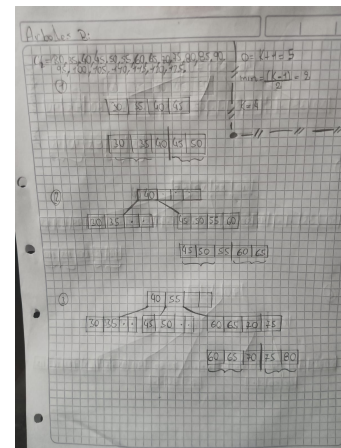 Arboles B:
30,35,40,45,50,55,60,65,70,75,80,85,90
95,100,105
= 5
= 2
①
30 35 40 45
30 35 40 45 50
②
40 . . .
30 35 . . 45 50 55 60
45 50 55 60 65
③
40 55
30 35 . . 45 50 . . 60 65 70 75
60 65 70 75 80